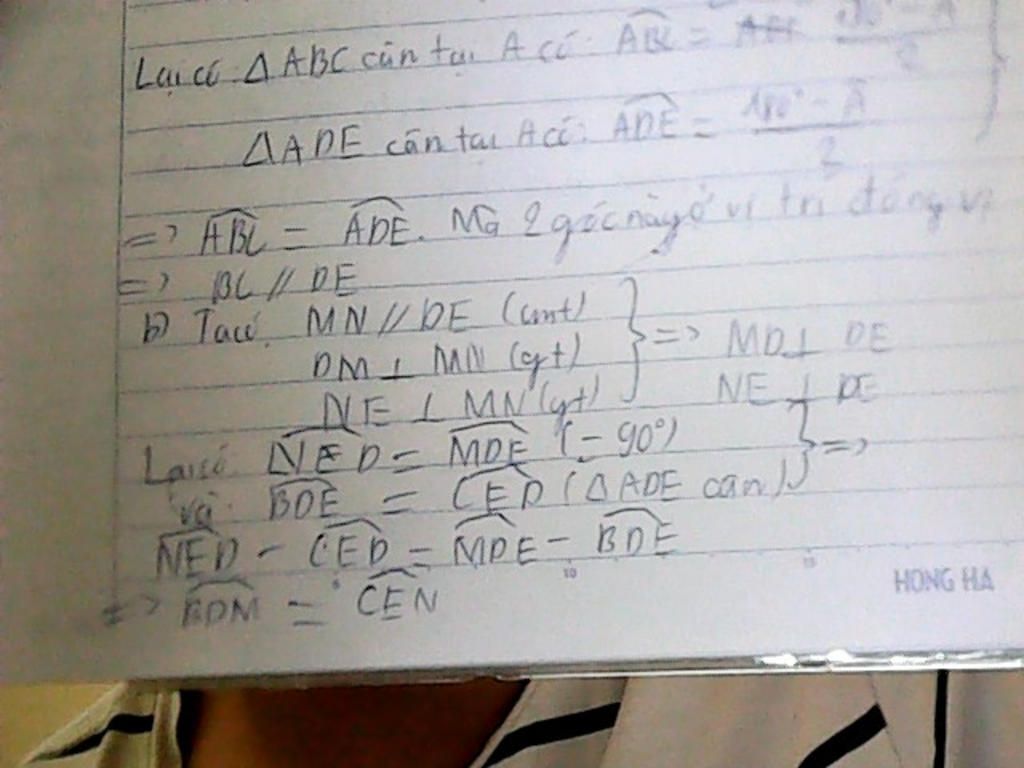 Lại có: ΔABC cân tại A có: ABC = 180° - A / 2
ΔADE cân tại A có: ADE = 180° - A / 2
=> ABC = ADE. Mà 2 góc này ở vị trí đồng vị
=> BC // DE
b) Ta có: MN // DE (cmt)
DM ⊥ MN (gt) } => MD ⊥ DE
NE ⊥ MN (gt) NE ⊥ DE
Lại có: NED = MDE (= 90°)
và: BDE = CED (ΔADE cân) } =>
NED - CED = MDE - BDE
=> BDM = CEN
5 10 15
HONG HA